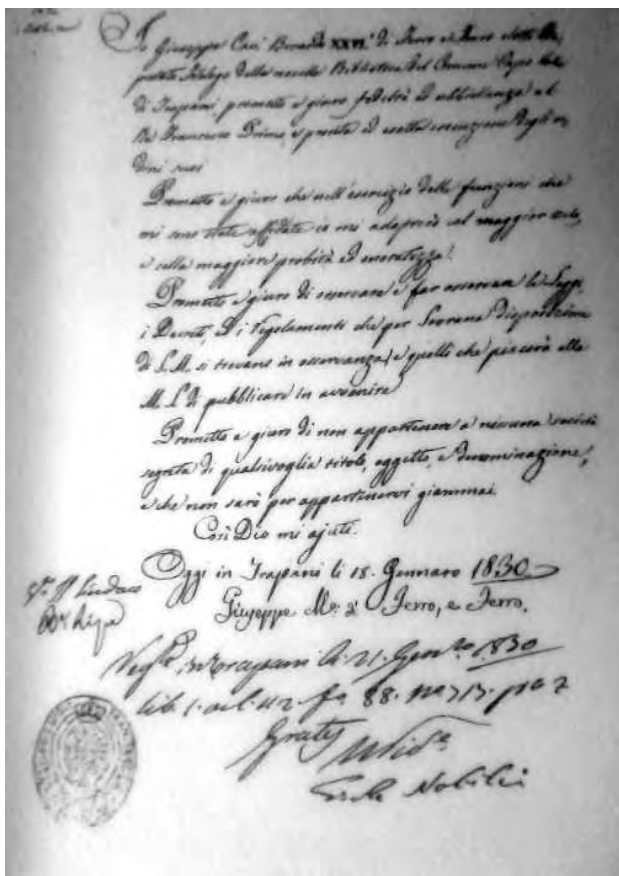 Io Giuseppe Cav. Benigno XXVI.° di Ferro e Ferro eletto
Bibliotecario della novella Biblioteca del Comune Capo Valle
di Trapani, prometto e giuro fedeltà ed ubbidienza al
Re Francesco Primo, e pronta ed esatta esecuzione degli or
dini suoi
Prometto e giuro che nell'esercizio delle funzioni che
mi sono state affidate io mi adoprerò col maggior zelo,
e colla maggiore probità ed esattezza.
Prometto e giuro di osservare e far osservare le Leggi,
i Decreti, ed i Regolamenti che per Sovrana disposizione
di S. M. si trovano in osservanza, e quelli che piacerà alla
M. S. di pubblicare in avvenire
Prometto e giuro di non appartenere a nessuna società
segreta di qualsivoglia titolo, oggetto, e denominazione,
e che non sarò per appartenervi giammai.
Così Dio mi ajuti.
Oggi in Trapani li 18. Gennaro 1830
Giuseppe M.a di Ferro, e Ferro.
Sindaco
Trapani li 21. Gen.ro 1830
lib. 1. vol. 42. f.o 88.
Gratis
Nobili